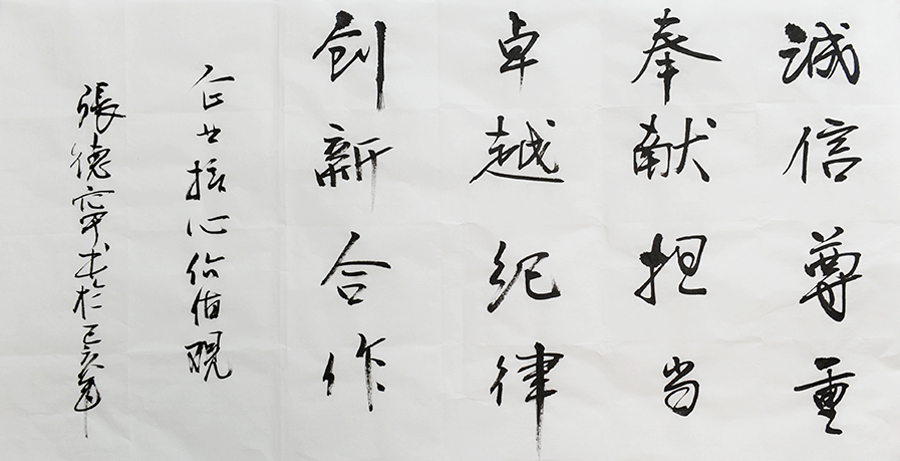 誠信尊重
奉献担当
卓越纪律
创新合作
企业核心价值观
張德寧书於己亥年